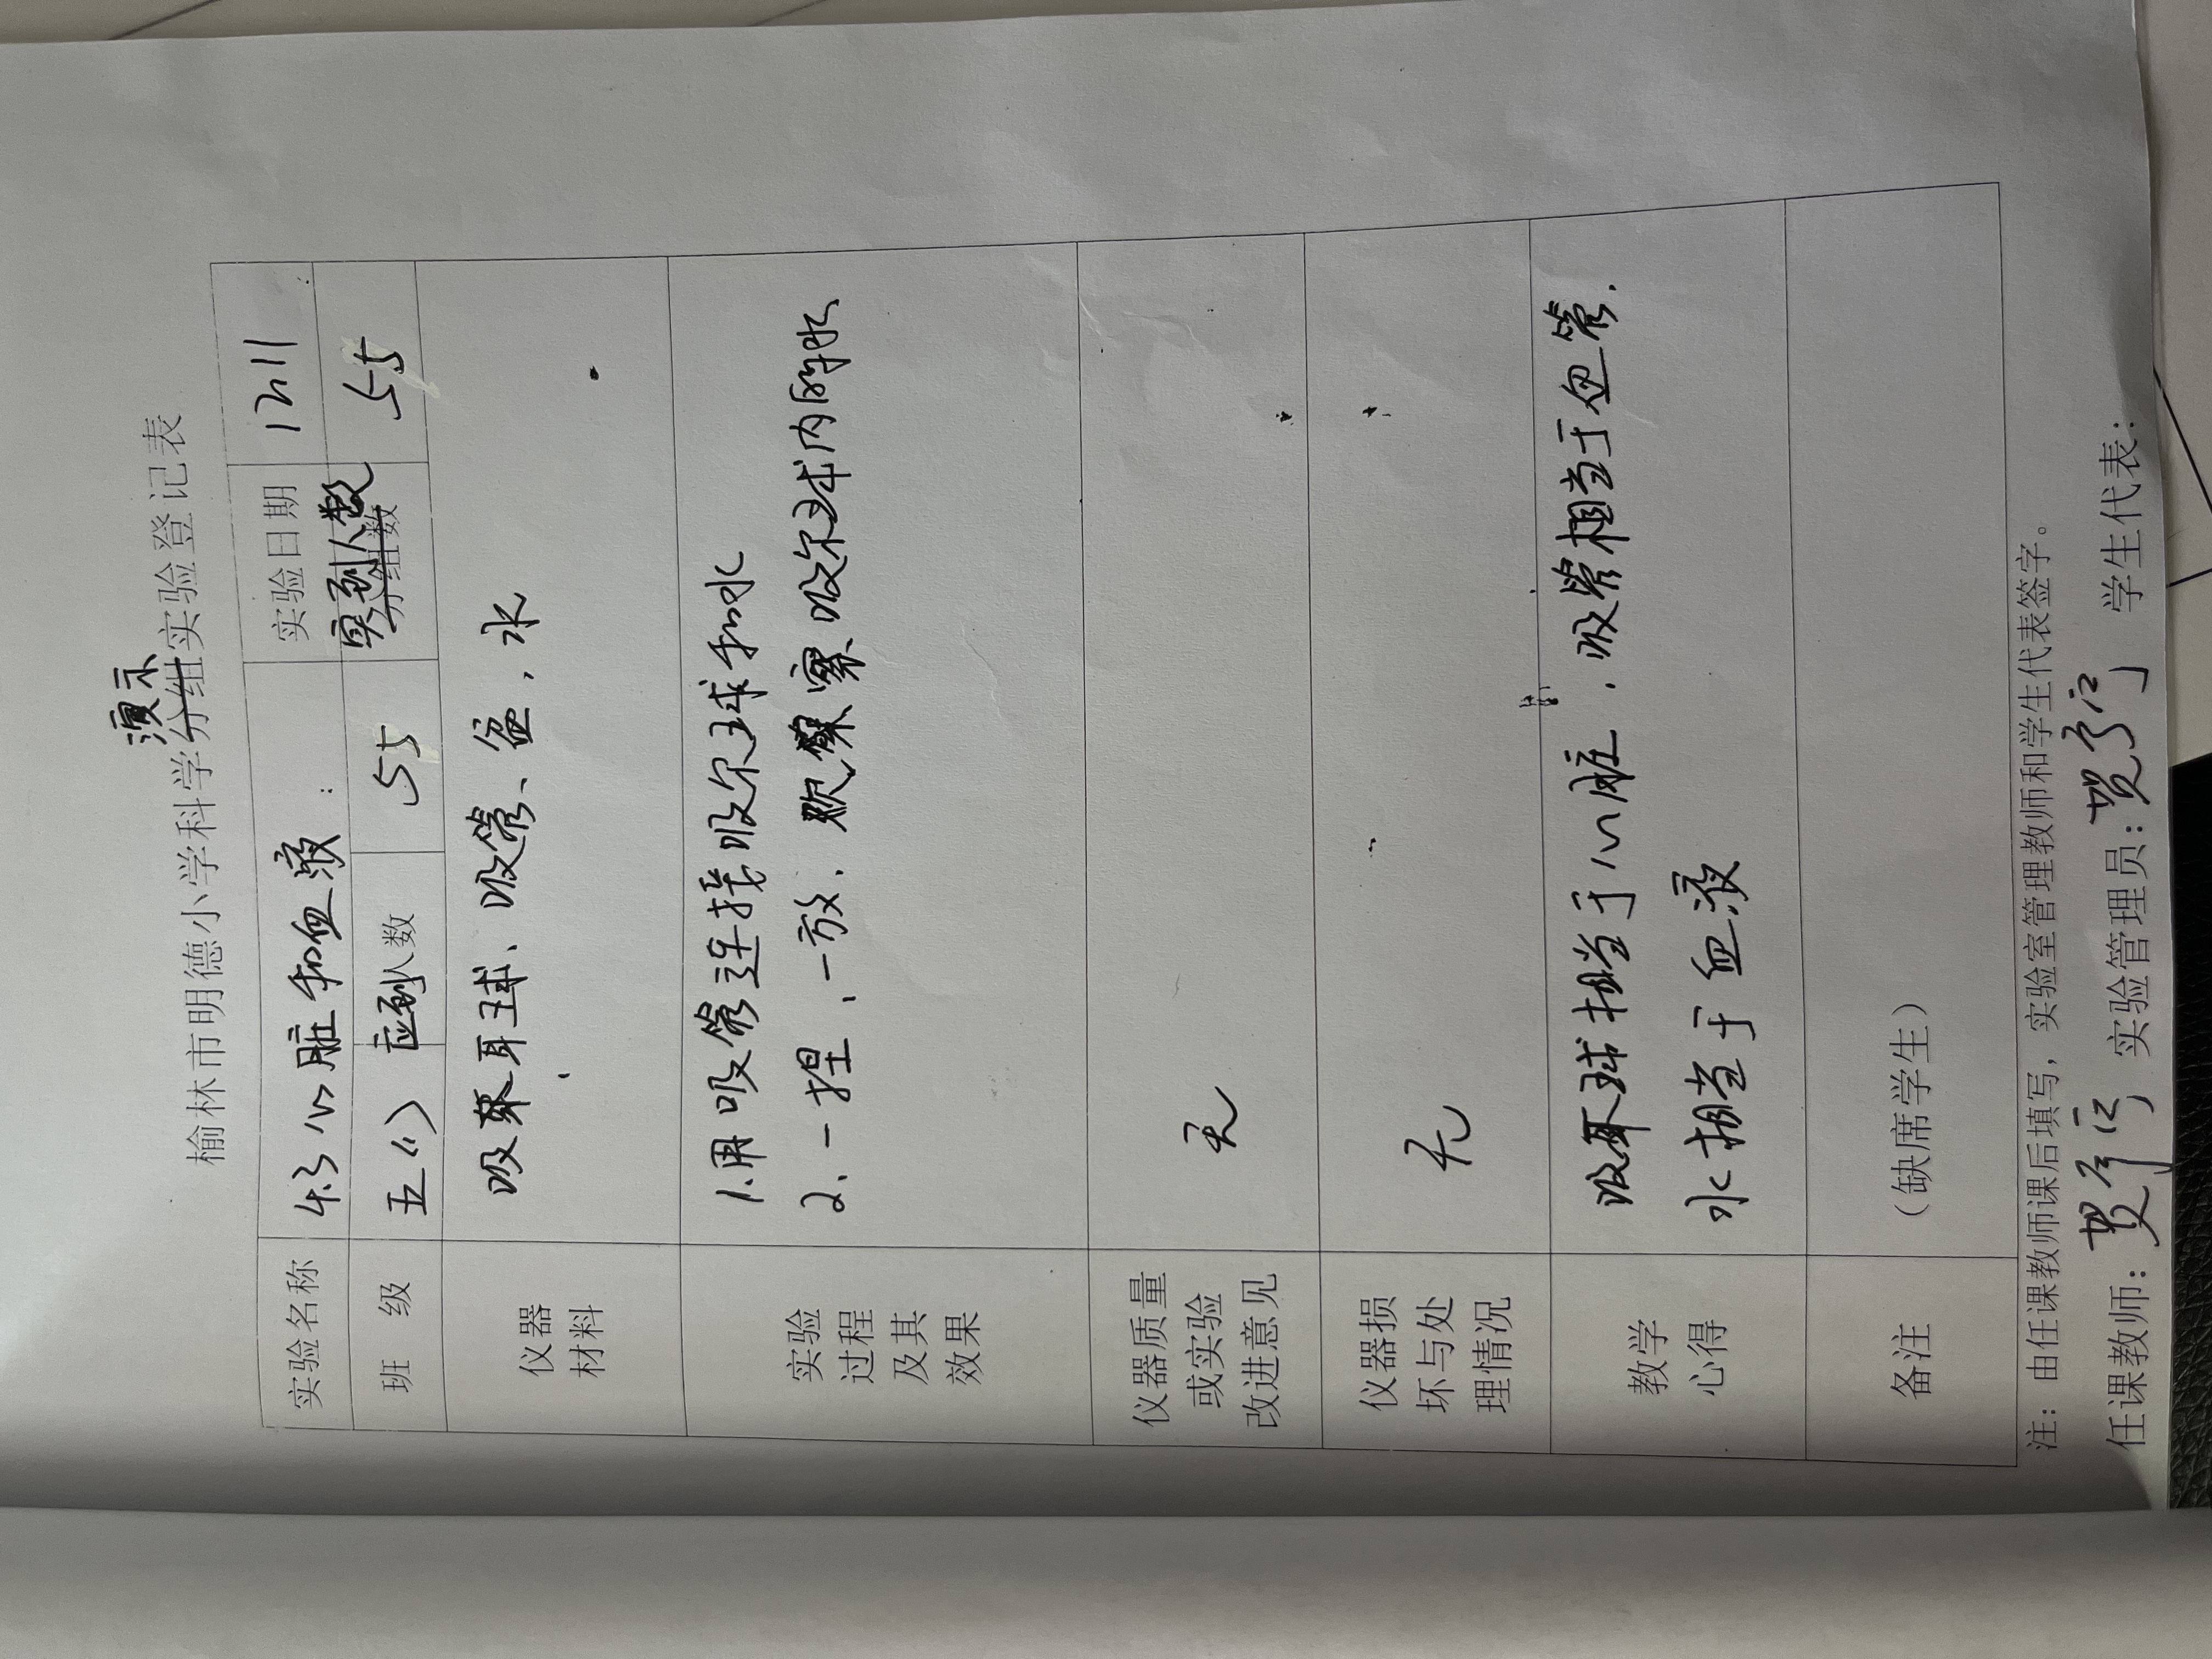 演示
榆林市明德小学科学分组实验登记表
实验名称 4.3 心脏和血液 实验日期 12.11
班 级 五(1) 应到人数 55 实到人数 55
分组数
仪器
材料
吸耳球、吸管、盆、水
实验
过程
及其
效果
1.用吸管连接吸尔球和水
2、一捏、一放、观察吸尔球内的水
仪器质量
或实验
改进意见
无
仪器损
坏与处
理情况
无
教学
心得
吸耳球相当于心脏，吸管相当于血管.
水相当于血液
备注
(缺席学生)
注：由任课教师课后填写，实验室管理教师和学生代表签字。
任课教师： 实验管理员： 学生代表：